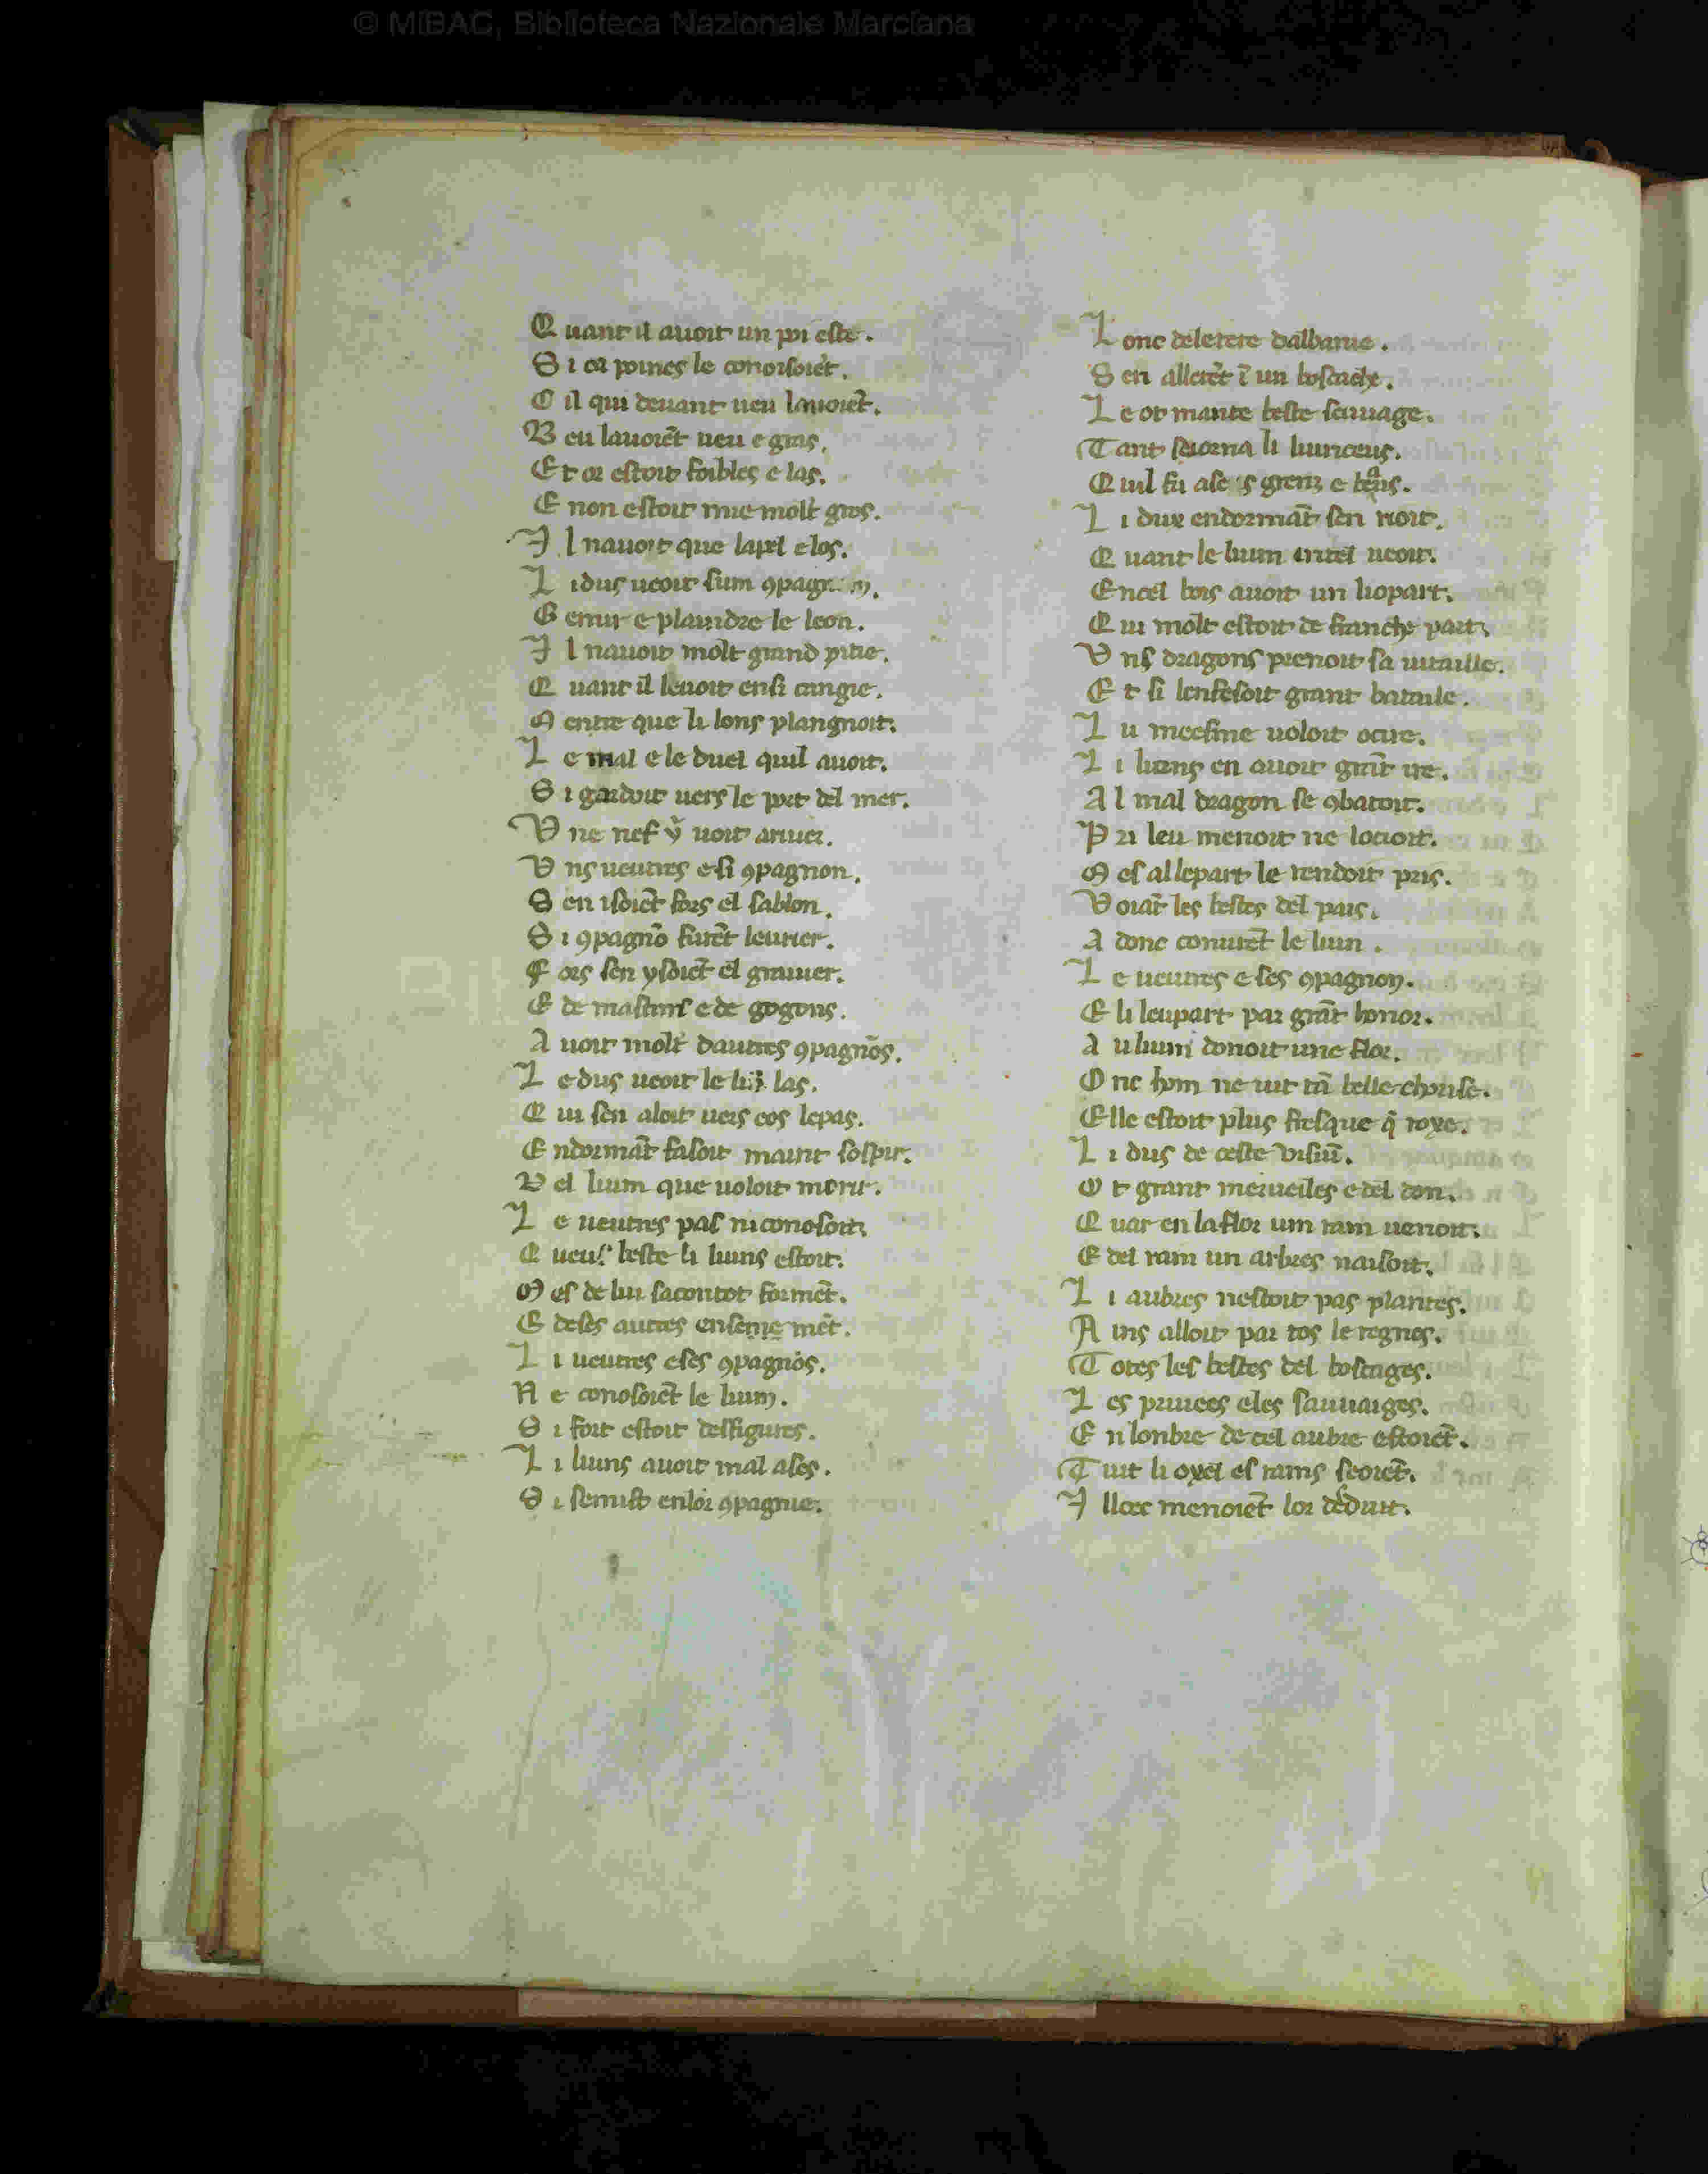 © MiBAC, Biblioteca Nazionale Marciana
Q uant il auoit un poi este.
S i ca poines le conoisoiēt.
C il qui deuant ueu lauoiēt.
B eu lauoiēt ueu e gras.
E t or estoit foibles e las.
E non estoit mie molt gros.
I l nauoit que lapel e los.
L i dus ueoit sum
G emir e plaindre le leon.
I l nauoit molt grand pitie.
Q uant il leuoit ensi cangie.
M entre que li lons plangnoit.
L e mal e le duel quil auoit.
S i gardoit uers le port del mer.
V ne nef uoit ariuer.
V ns ueutres e si ꝯpagnon.
S en isoiēt fors el sablon.
S i ꝯpagnō furēt leurier.
F ors sen ysoiēt el grauier.
E de mastins e de gogons.
A uoit molt dautres ꝯpagnōs.
L e dus ueoit le las.
Q ui sen aloit uers eos lepas.
E ndormāt fasoit maint sospir.
B el lium que uoloit morir.
L e ueutres pas ni conosoit.
Q beste li liuns estoit.
M es de lui sacontot formēt.
E deses autres enseme mēt.
L i ueutres e ses ꝯpagnōs.
N e conosoiēt le lium.
S i fort estoit desfigures.
L i liuns auoit mal ases.
S i semist enlor ꝯpagnie.
L onc deletere dalbanie.
S en allerēt ī un boscache.
L e ot mante beste seuuage.
T ant seiorna li liunceus.
Q uil fu grenz e
L i dux endormāt sen rioit.
Q uant le lium ueoit.
E ncel bois auoit un liopart.
Q ui molt estoit de franche part.
V ns dragons prenoit sa uitaille.
E t si lenfesoit grant bataile.
L u meesme uoloit ocire.
L i liuns en auoit grāt ire.
A l mal dragon se ꝯbatoit.
P ri leu menoit ne locioit.
M es al lepart le rendoit pris.
V oiāt les bestes del pais.
A donc lium.
L e ueutres e ses ꝯpagnon.
E li leupart par grāt honor.
A u lium donoit une flor.
O nc hom ne uit tā belle chouse.
E lle estoit plus fresque q̄ roxe.
L i dus de ceste uisiū.
O t grant merueiles e del don.
Q uar en la flor um ram uenoit.
E del ram un arbres naisoit.
L i aubres nestoit pas plantes.
A ins alloit par tos le regnes.
T otes les bestes del boscages.
L es priuees e les sauuaiges.
E n lonbre de cel aubre estoiēt.
T uit li oxel es rams seoiēt.
I lloec menoiēt lor deduit.